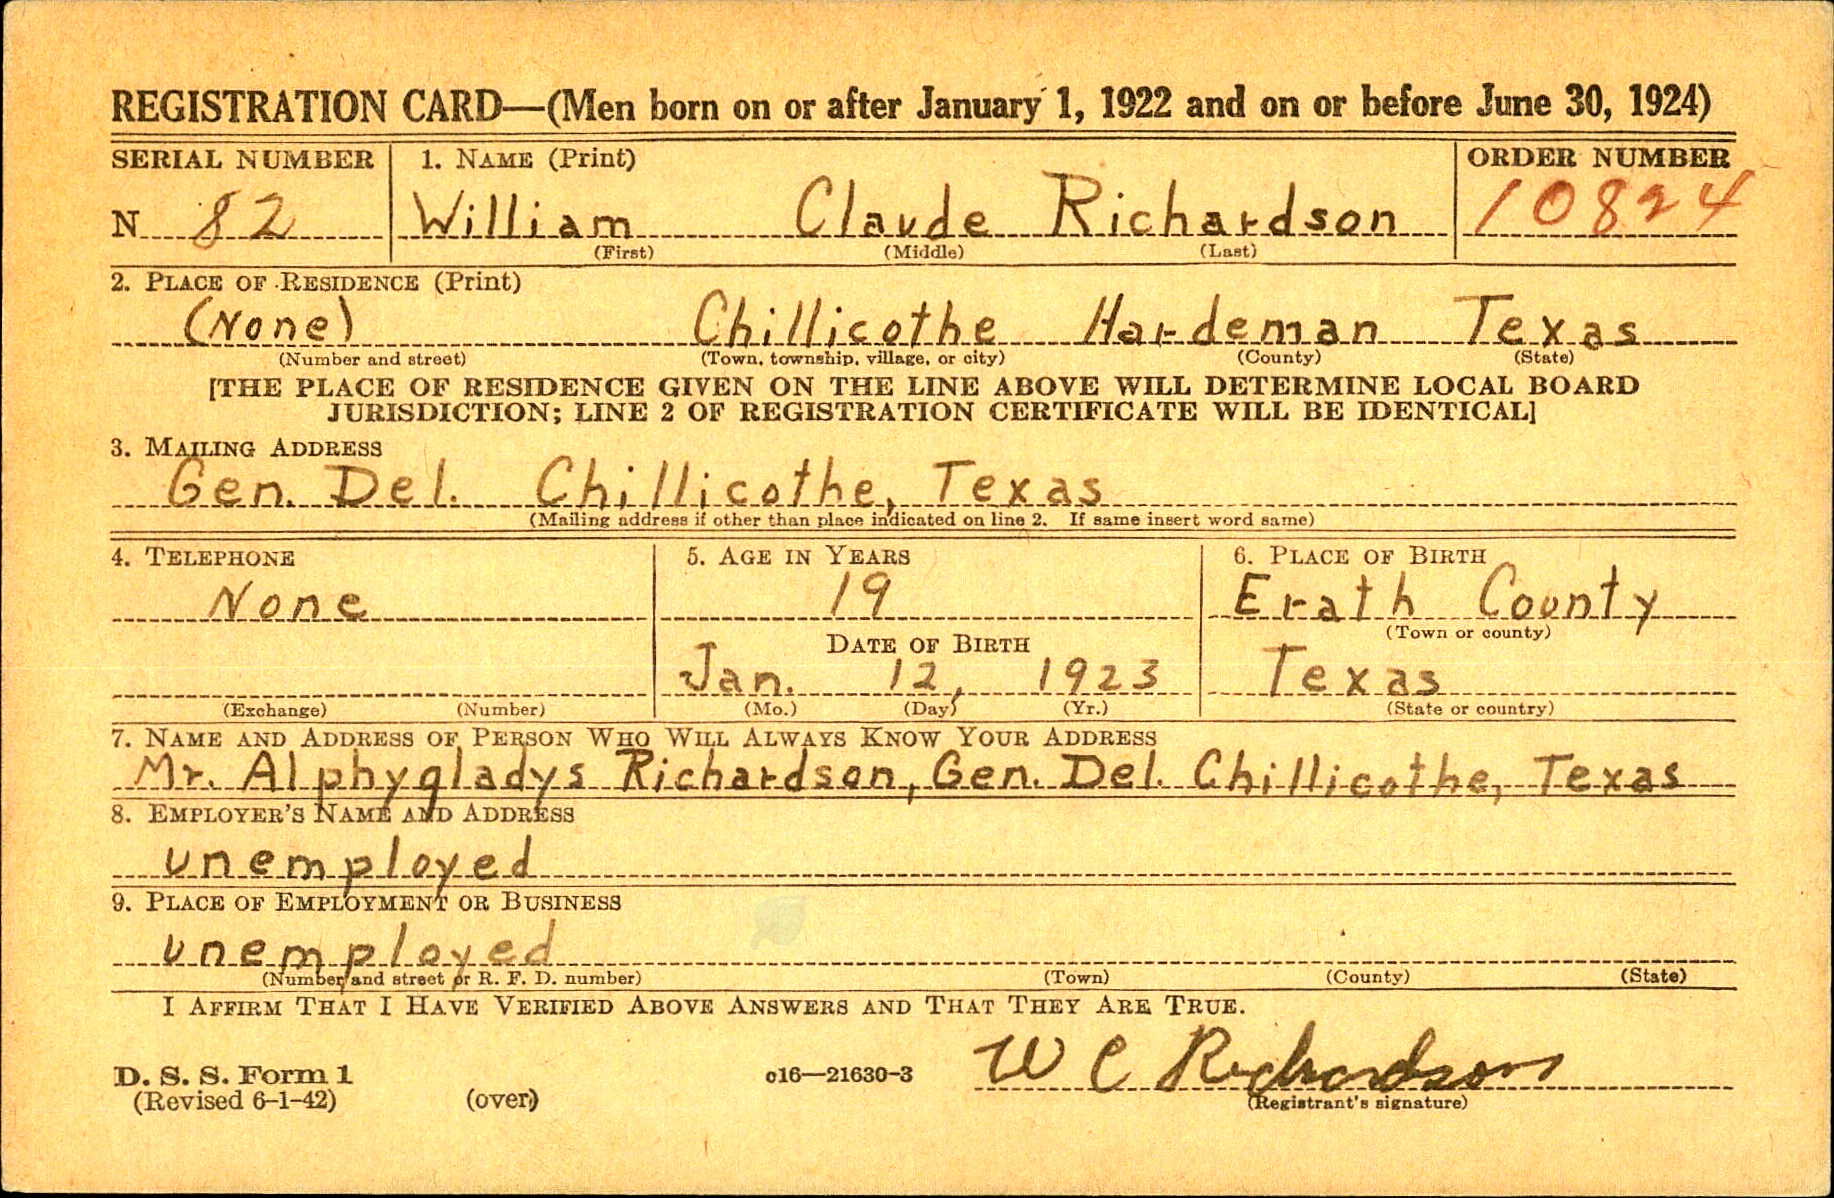 REGISTRATION CARD—(Men born on or after January 1, 1922 and on or before June 30, 1924)
SERIAL NUMBER 1. NAME (Print) ORDER NUMBER
N 82 William Claude Richardson 10824
(First) (Middle) (Last)
2. PLACE OF RESIDENCE (Print)
(None) Chillicothe Hardeman Texas
(Number and street) (Town, township, village, or city) (County) (State)
[THE PLACE OF RESIDENCE GIVEN ON THE LINE ABOVE WILL DETERMINE LOCAL BOARD
JURISDICTION; LINE 2 OF REGISTRATION CERTIFICATE WILL BE IDENTICAL]
3. MAILING ADDRESS
Gen. Del. Chillicothe, Texas
(Mailing address if other than place indicated on line 2. If same insert word same)
4. TELEPHONE 5. AGE IN YEARS 6. PLACE OF BIRTH
None 19 Erath County
DATE OF BIRTH (Town or county)
Jan. 12, 1923 Texas
(Exchange) (Number) (Mo.) (Day) (Yr.) (State or country)
7. NAME AND ADDRESS OF PERSON WHO WILL ALWAYS KNOW YOUR ADDRESS
Mr. Alphygladys Richardson, Gen. Del. Chillicothe, Texas
8. EMPLOYER'S NAME AND ADDRESS
unemployed
9. PLACE OF EMPLOYMENT OR BUSINESS
unemployed
(Number and street or R. F. D. number) (Town) (County) (State)
I AFFIRM THAT I HAVE VERIFIED ABOVE ANSWERS AND THAT THEY ARE TRUE.
W C Richardson
D. S. S. Form 1 c16—21630-3
(Revised 6-1-42) (over) (Registrant's signature)